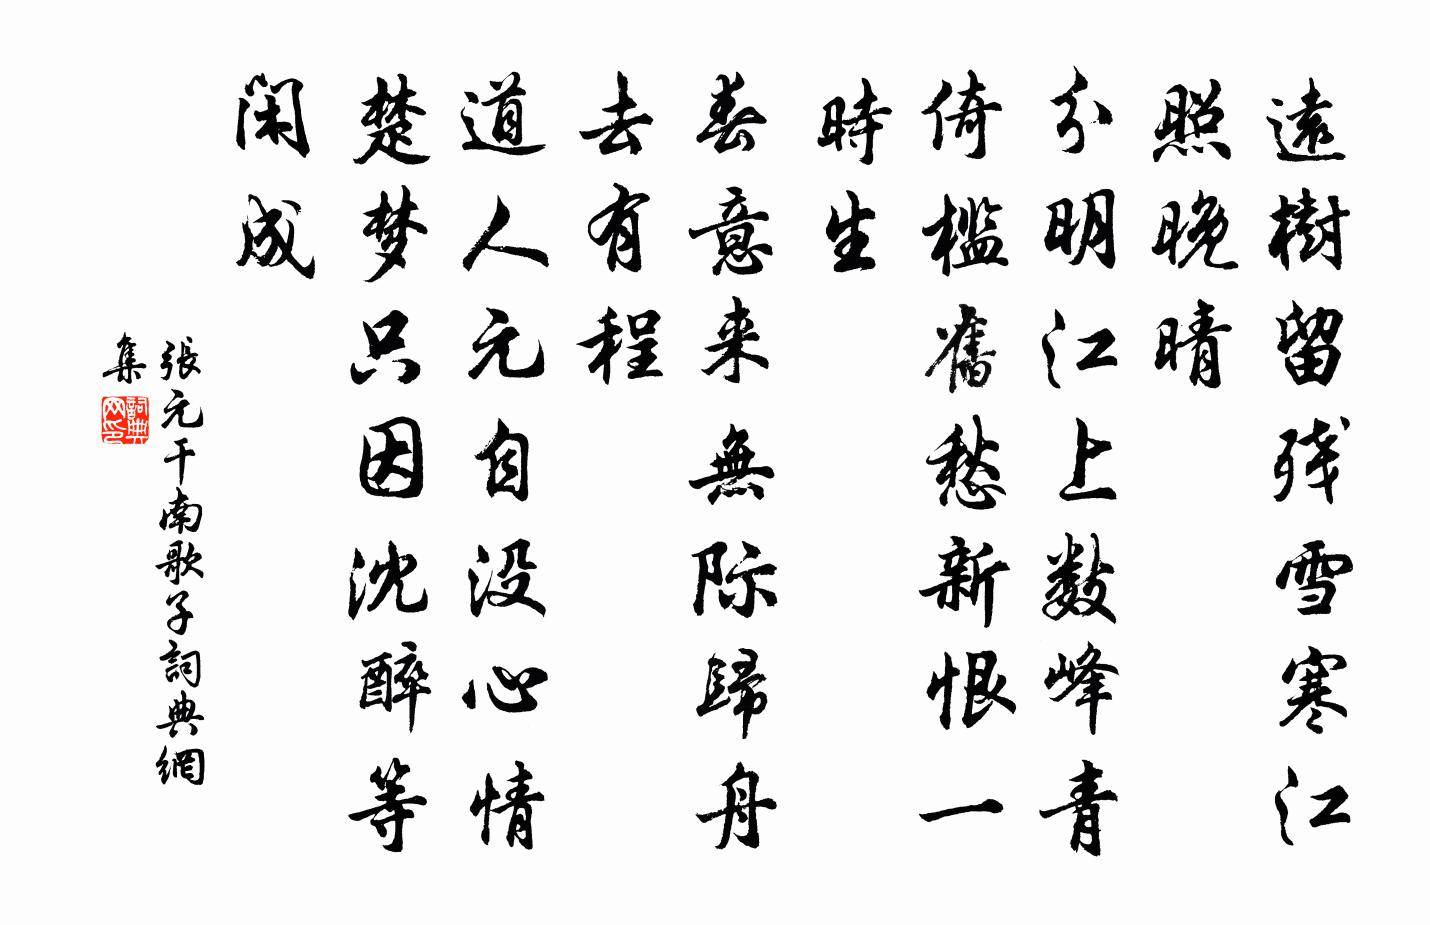 遠樹留残雪寒江
照晚晴
分明江上数峰青
倚檻舊愁新恨一
時生
春意来無际歸舟
去有程
道人元自没心情
楚梦只因沈醉等
闲成
張元干南歌子詞典網
集
詞典
网印